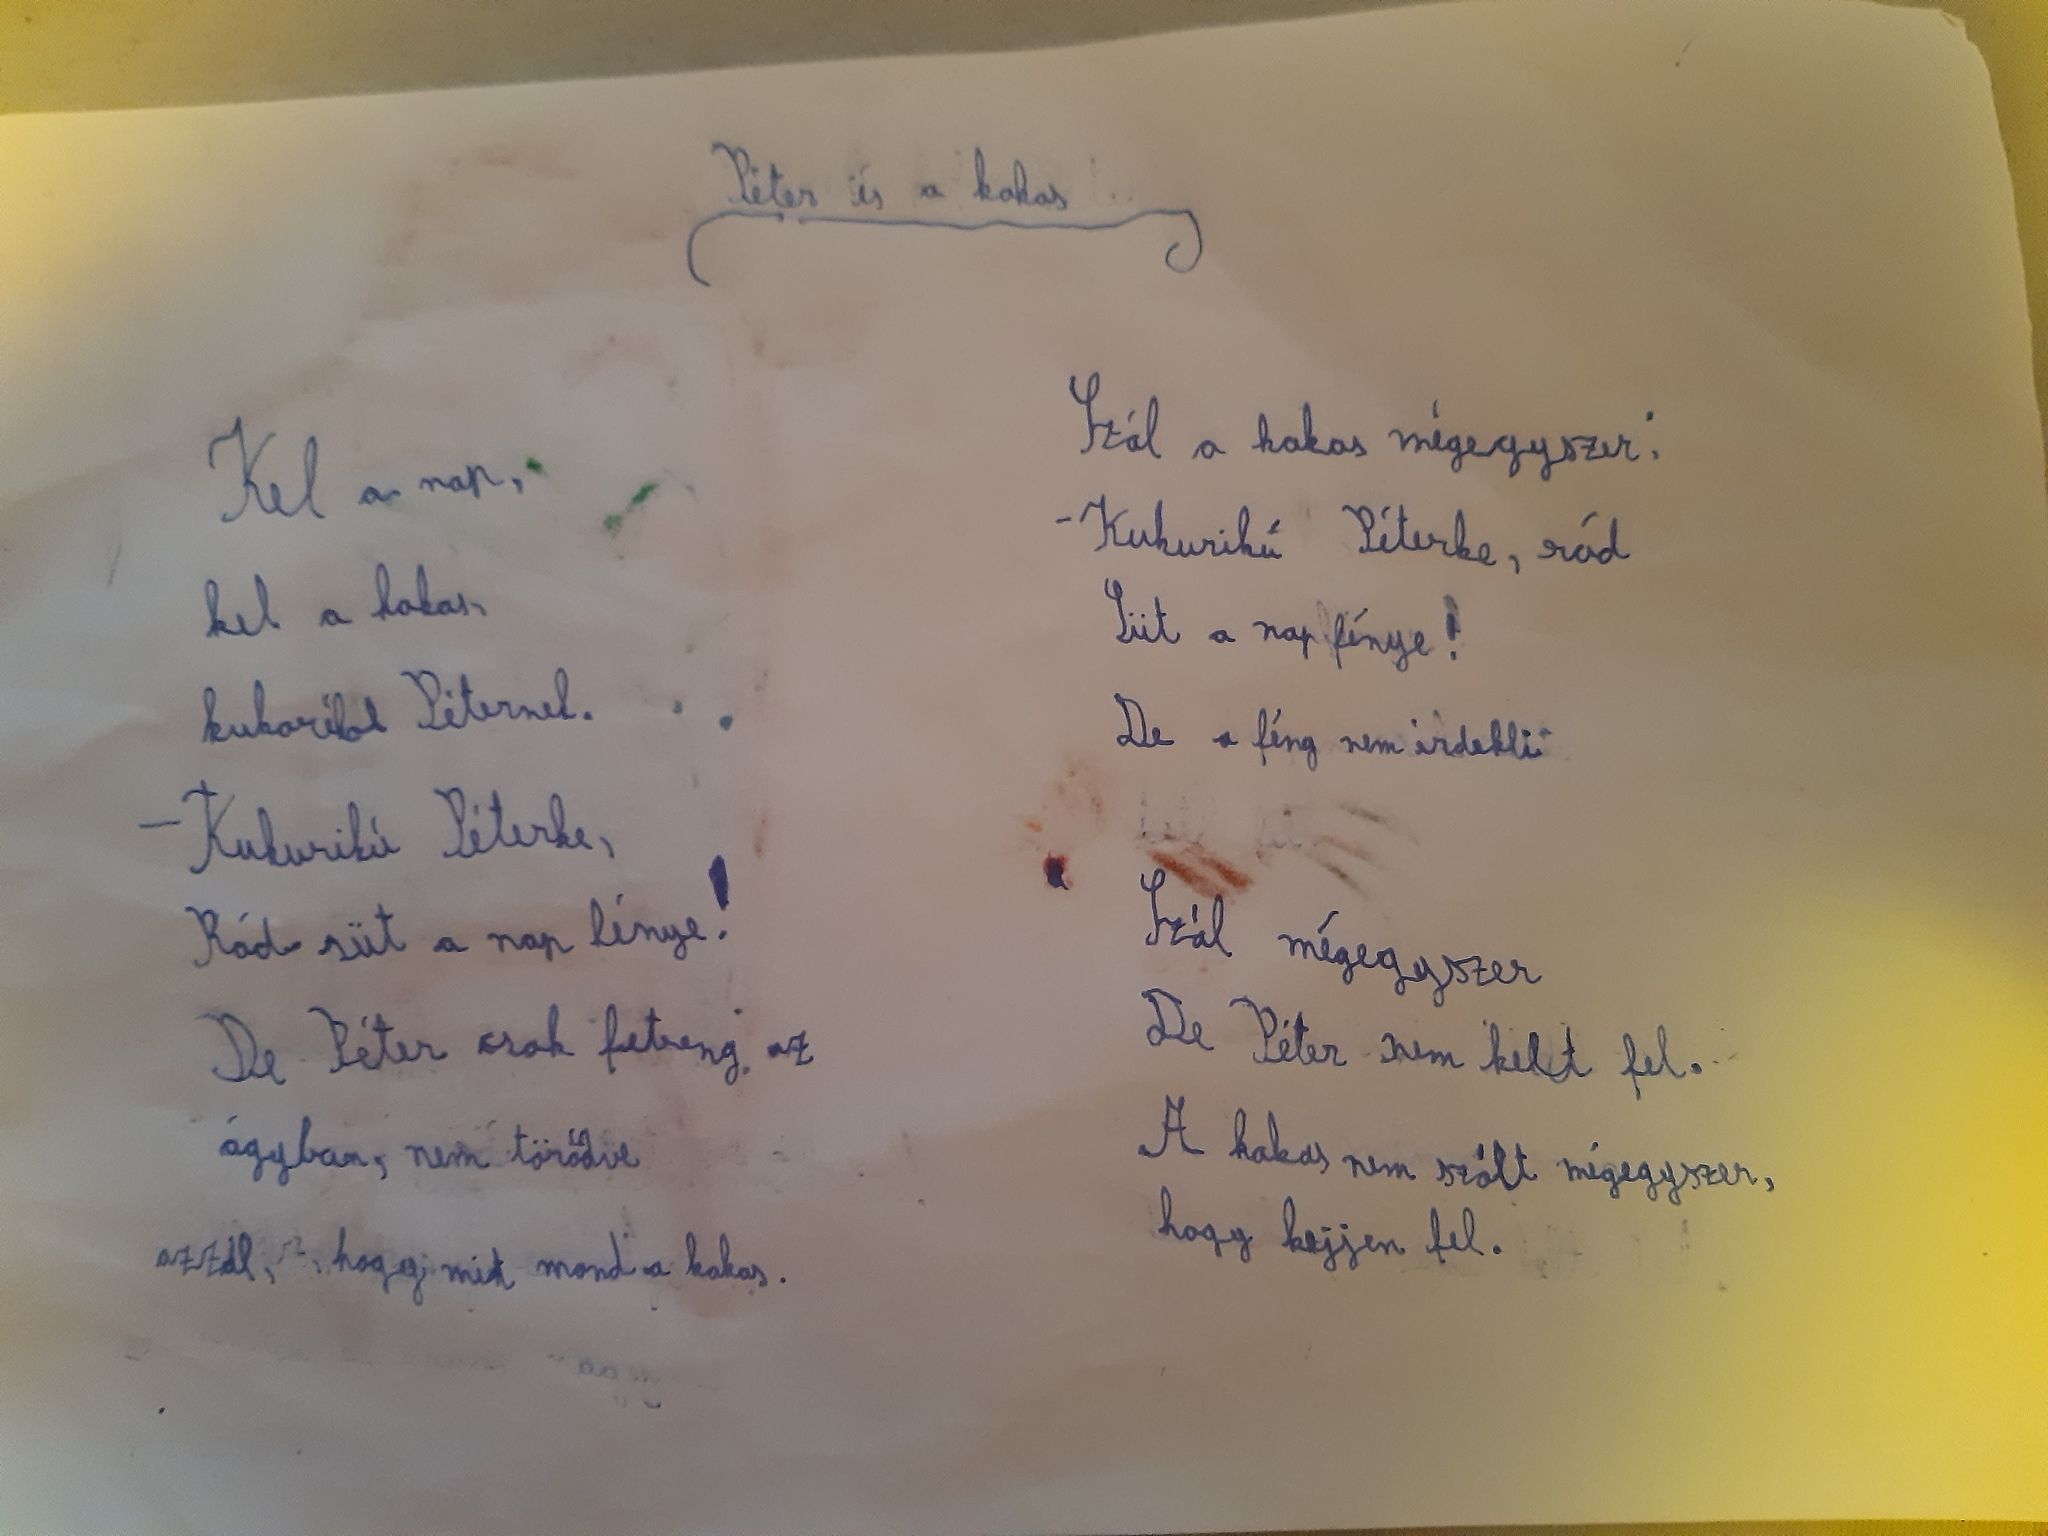 Péter és a kakas
Kel a nap,
kel a kakas,
kukorékol Péternek.
– Kukurikú Péterke,
Rád süt a nap fénye!
De Péter csak fetreng az
ágyban, nem törődve
azzal, hogy mit mond a kakas.
Szól a kakas mégegyszer:
- Kukurikú Péterke, rád
Süt a nap fénye!
De a féng nem érdekli
Szól mégegyszer
De Péter nem kelt fel.
A kakas nem szólt mégegyszer,
hogy kejjen fel.